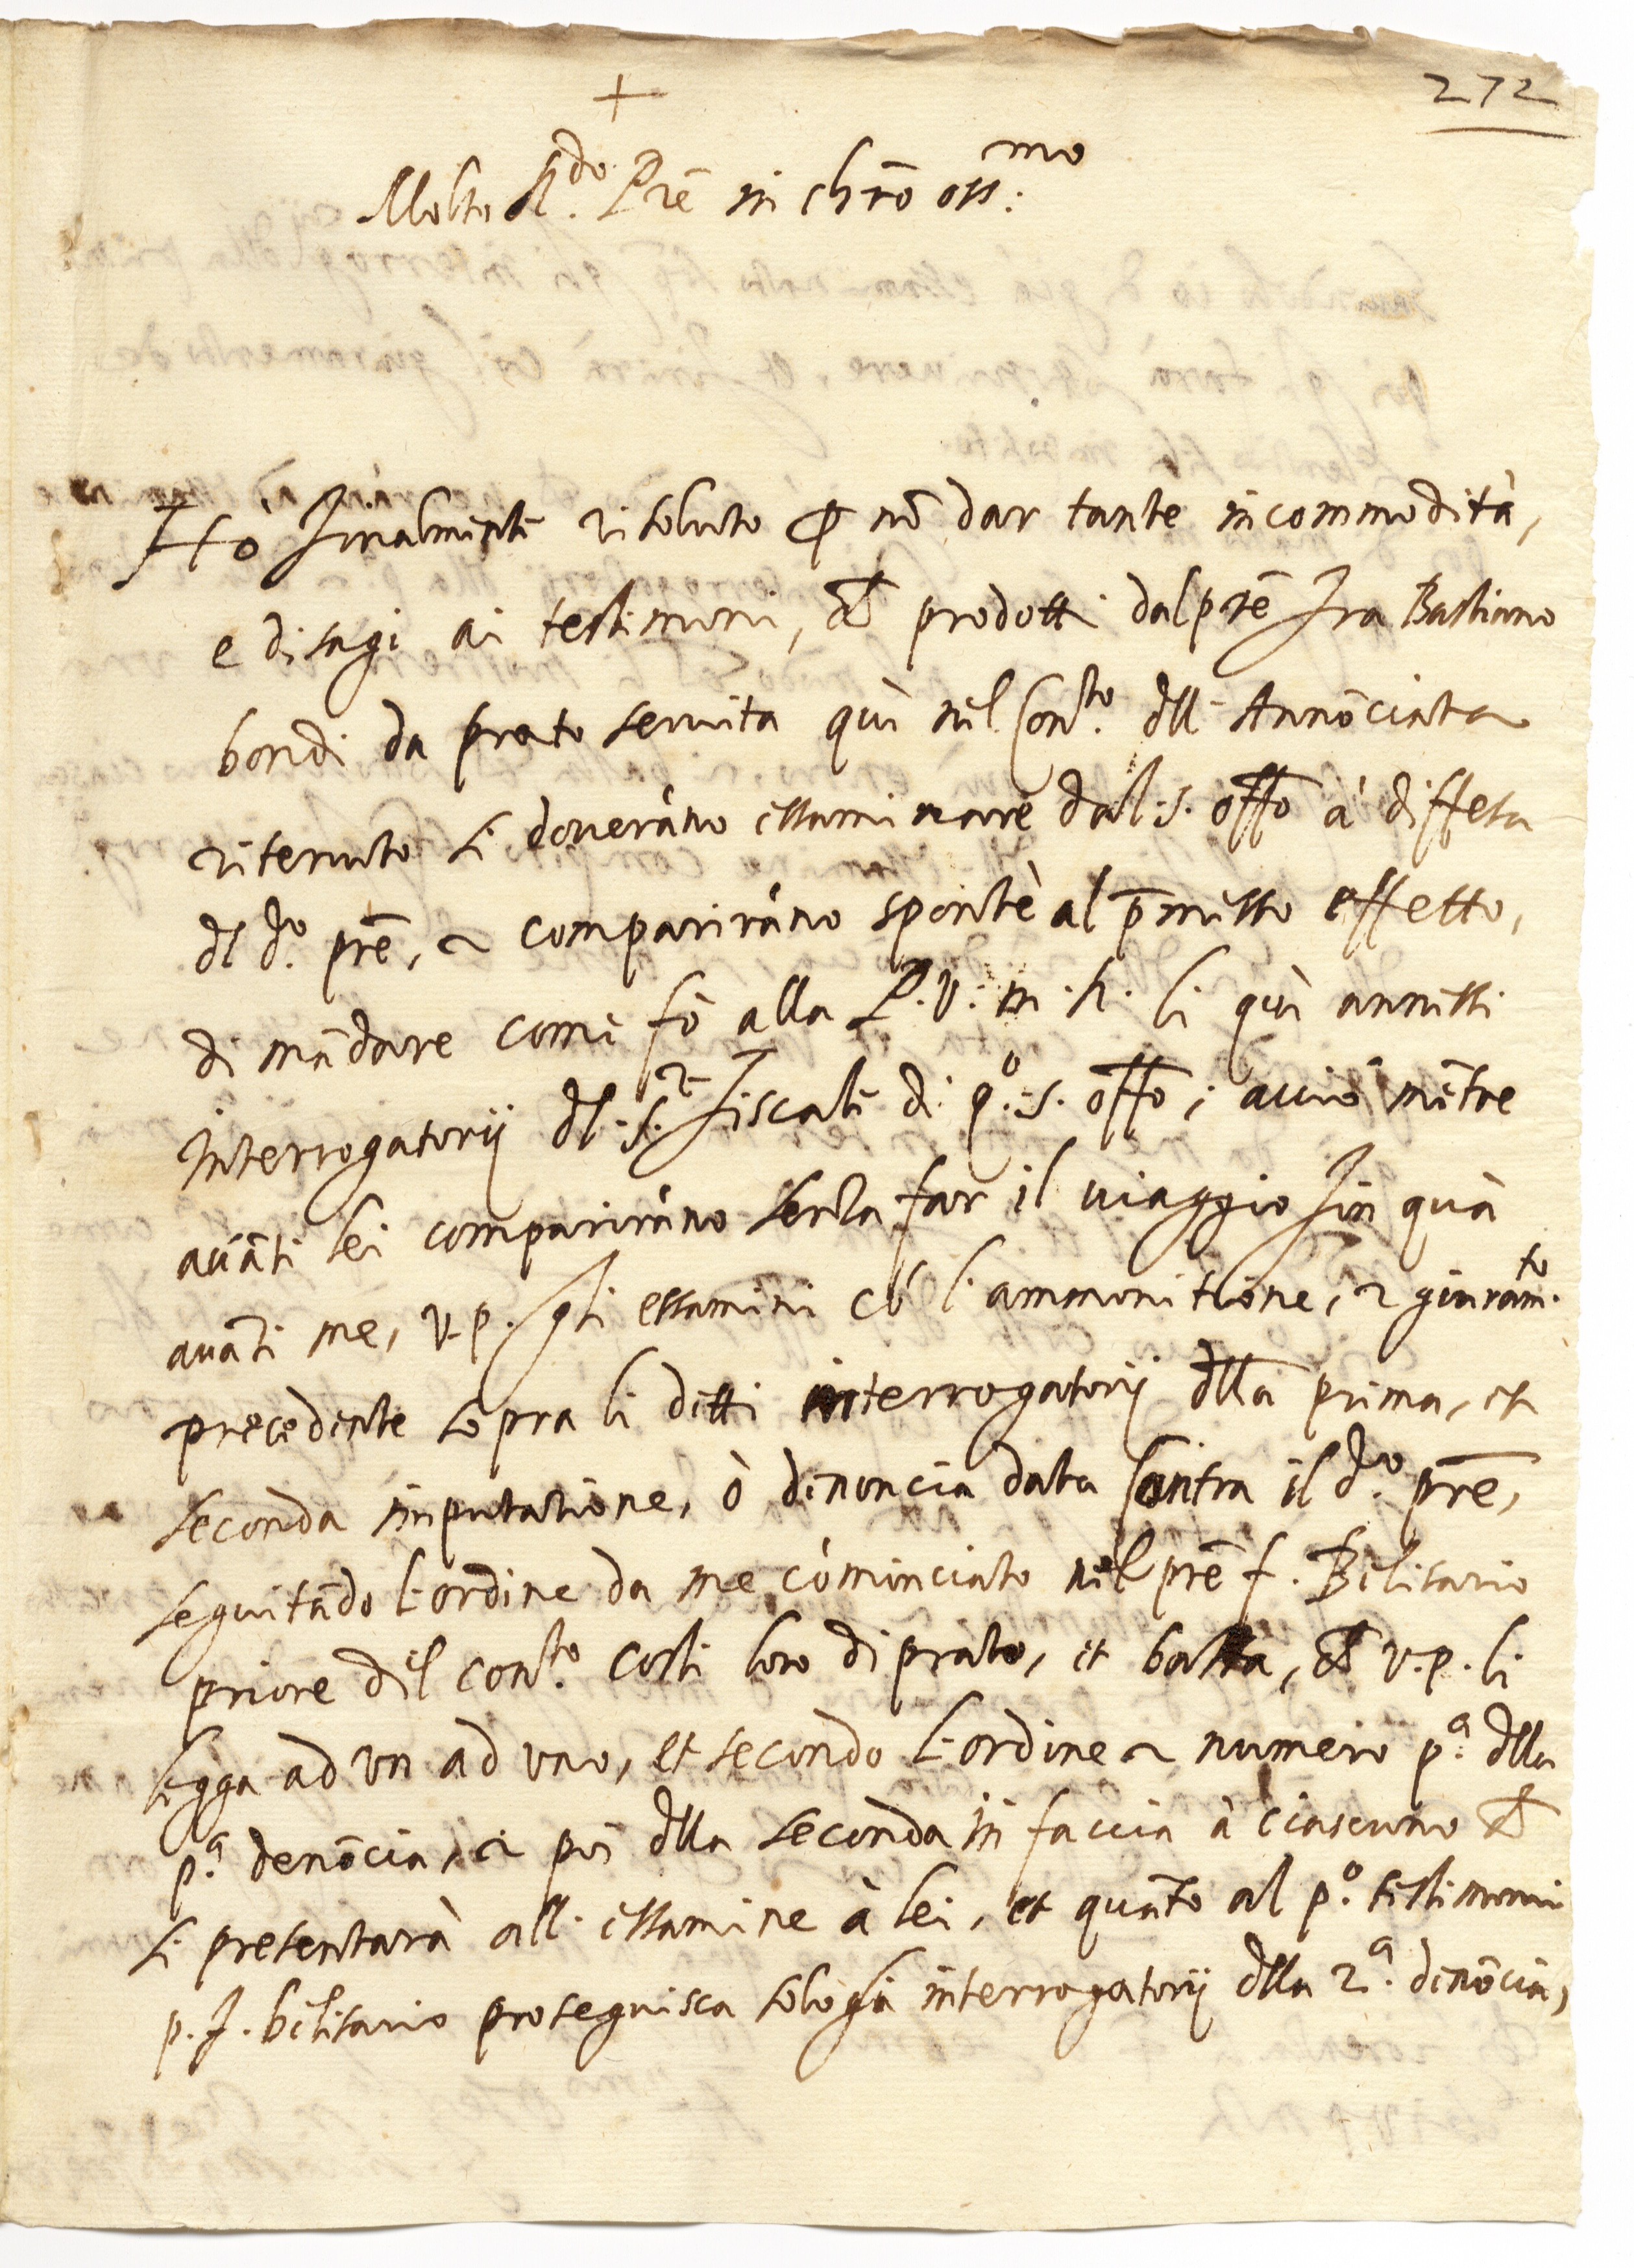 272
+
Molto R.do Prē in chrō oss.mo
Hò finalmente risoluto ꝑ nō dar tante incommodità,
e disagi ai testimoni, che prodotti dal prē fra Bastiano
bondi da prato seruita quì nel Conto. dll' Annōciata
ritenuto si doueràno essaminare dal s. offo à diffesa
dl do. prē, e compariràno spontè al p̄messo effetto,
di mādare come fò alla P. V. m. R. li quì annessi
interrogatorij dl s.r fiscale di qo. s. offo, acciò mētre
auāti lei compariràno senza far il uiaggio fin quà
auāti me, V. P. gli essamini cō l'ammonitione, e giuram.to
precedente sopra li detti interrogatorij dlla prima, et
seconda imputatione, ò denoncia data Contra il do. prē,
seguitādo l'ordine da me cōminciato nel prē f. Belisario
priore del conto. costì loro di prato, et basta, che V. P. li
legga ad vn ad vno, et secondo l'ordine e numero p.a dlla
p.a denōcia, e poi dlla seconda in faccia à ciascuno che
si presentarà all' essamine à lei, et quāto al p.o testimonio
p. f. belisario proseguisca solo gli interrogatorij dlla 2.a denōcia,